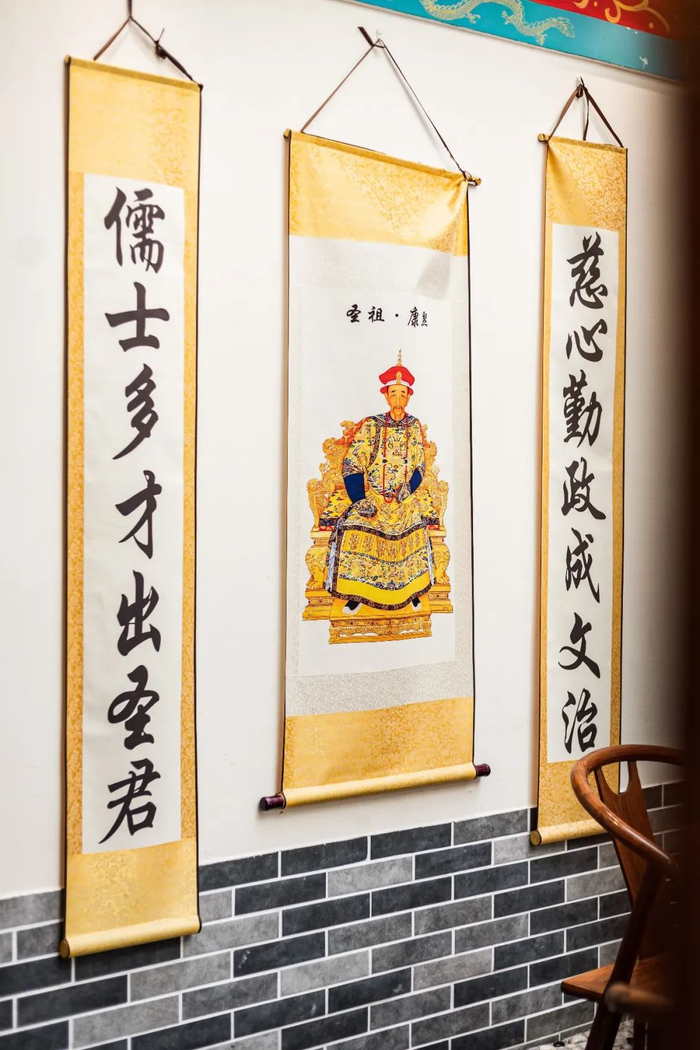 慈心勤政成文治
圣祖·康熙
儒士多才出圣君